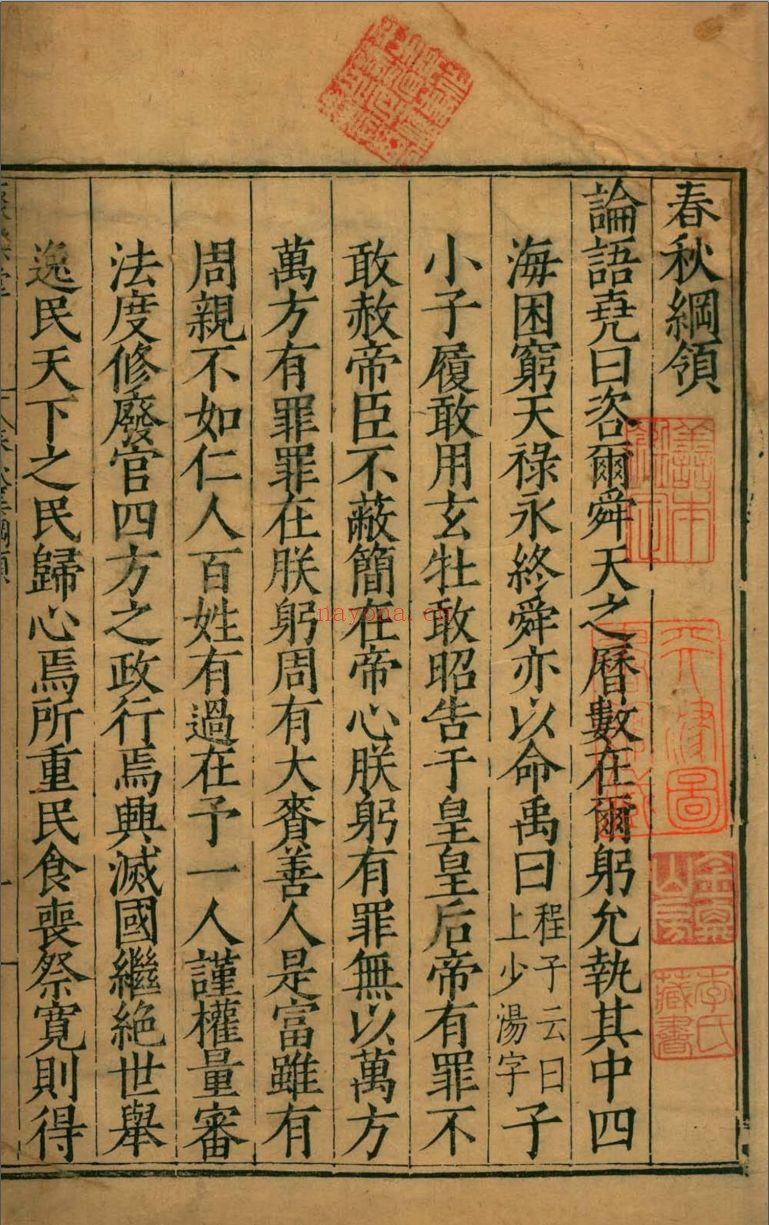 春秋綱領
論語堯曰咨爾舜天之曆數在爾躬允執其中四
海困窮天祿永終舜亦以命禹曰程子云曰上少湯字子
小子履敢用玄牡敢昭告于皇皇后帝有罪不
敢赦帝臣不蔽簡在帝心朕躬有罪無以萬方
萬方有罪罪在朕躬周有大賚善人是富雖有
周親不如仁人百姓有過在予一人謹權量審
法度修廢官四方之政行焉興滅國繼絕世舉
逸民天下之民歸心焉所重民食喪祭寬則得
李氏藏書